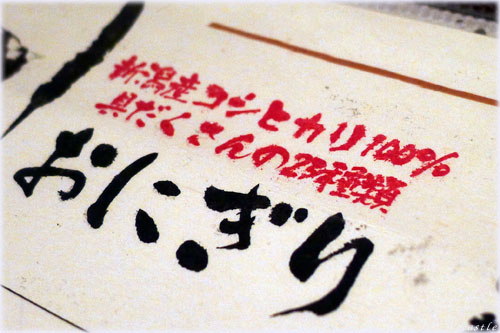 新潟産コシヒカリ100%
具だくさんの25種類
おにぎり